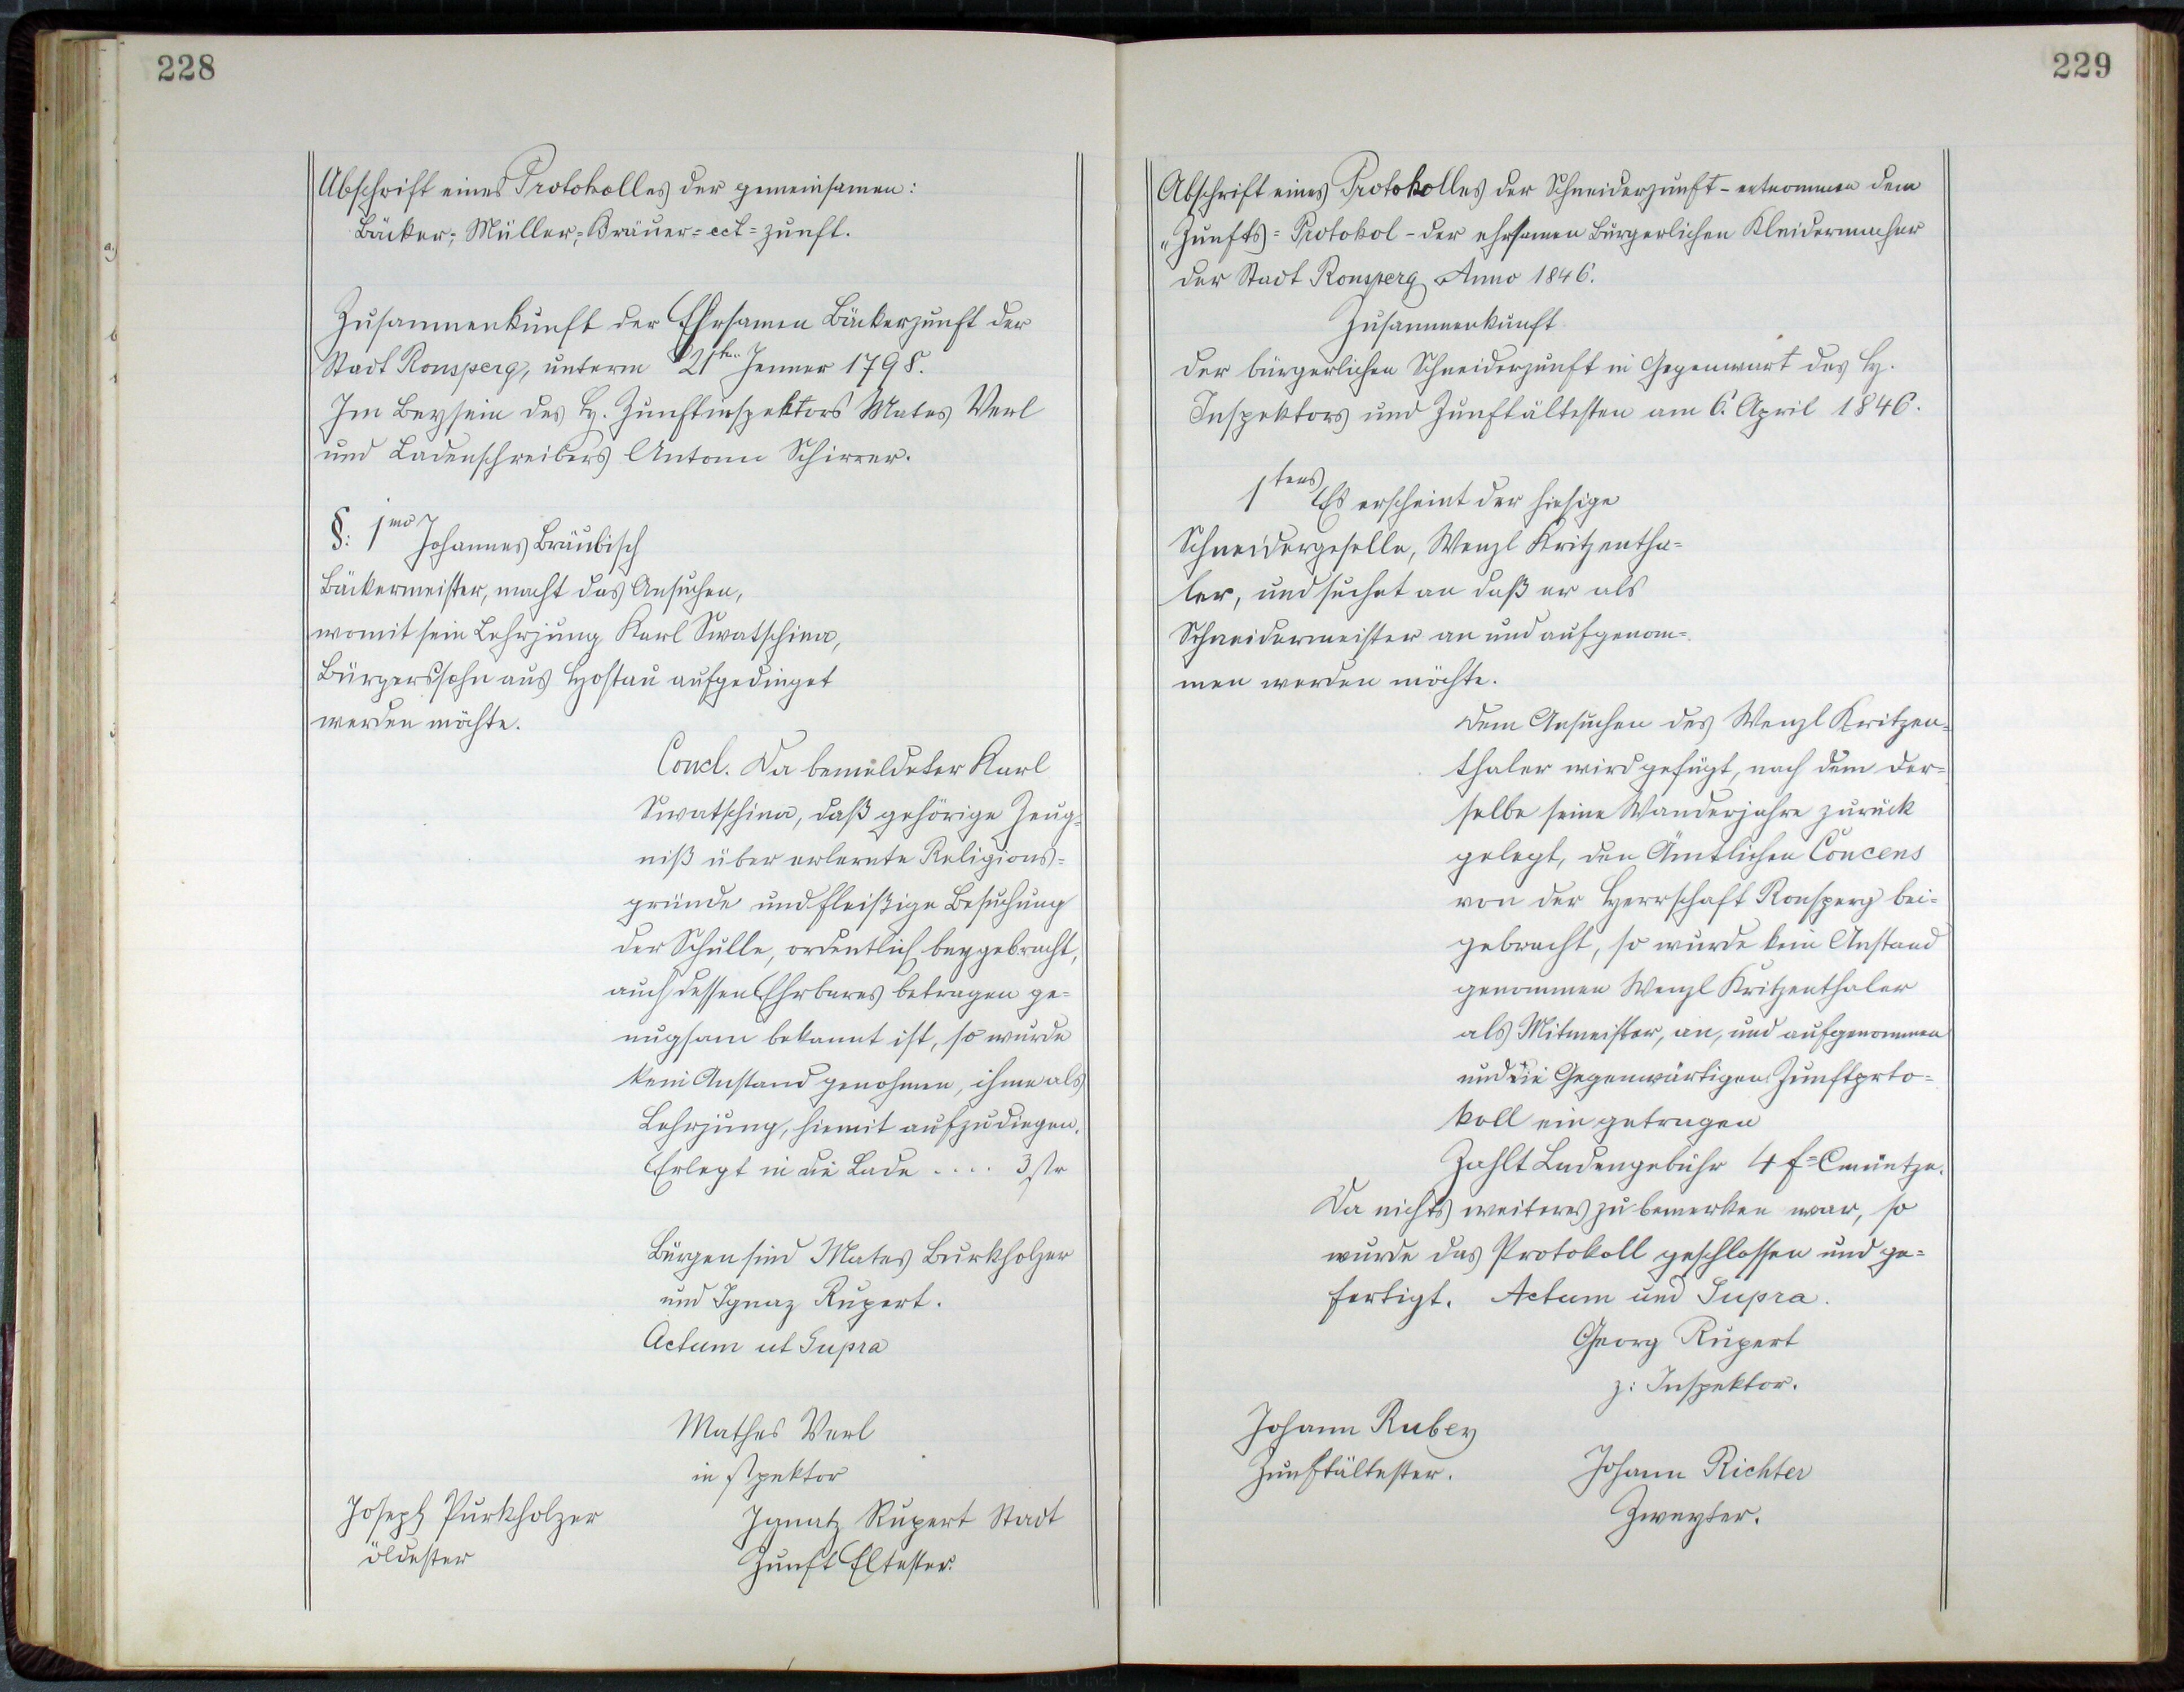 228
Abschrift eines Protokolles der gemeinsamen:
Bäcker-, Müller-, Bräuer= ect= zunft.
Zusammenkunft der Ehrsamen Bäckerzunft der
Stadt Ronsperg, unterm 21ten Jenner 1798.
Im Beysein des H. Zunftinspektors Mates Verl
und Ladenschreibers Antonn Schirrer.
§: 1mo Johannes Bräubisch
Bäckermeister, macht das Ansuchen,
womit sein Lehrjung Karl Swatschina,
Bürgerssohn aus Hostau aufgedinget
werden möchte.
Concl. Da bemeldeter Karl
Swatschina, daß gehörige Zeug=
niß über erlernte Religions=
gründe und fleißige Besuchung
der Schulle, ordentlich beygebracht,
auch dessen Ehrbares betragen ge=
nugsam bekannt ist, so wurde
kein Anstand genohmen, ihme als
Lehrjung, hiemit aufzudiegen.
Erlegt in die Lade .... 3 str
Bürgen sind Mates Burkholzer
und Ignaz Rupert.
Actum ut Supra
Mathes Verl
in spektor
Joseph Purkholzer
öldester
Ignatz Rupert Stadt
Zunft Eltester.
229
Abschrift eines Protokolles der Schneiderzunft - entnommen dem
„Zunfts= Protokol - der ehrsamen Bürgerlichen Kleidermacher
der Stadt Ronsperg Anno 1846.
Zusammenkunft
der bürgerlichen Schneiderzunft in Gegenwart des H.
Inspektors und Zunftältesten am 6. April 1846.
1tens Es erscheint der hiesige
Schneidergeselle, Wenzl Kritzentha=
ler, und suchet an daß er als
Schneidermeister an und aufgenom=
men werden möchte.
Dem Ansuchen des Wenzl Kritzen=
thaler wird gefügt, nach dem der=
selbe seine Wanderjahre zurück
gelegt, den Ämtlichen Concens
von der Herrschaft Ronsperg bei=
gebracht, so wurde kein Anstand
genommen Wenzl Kritzenthaler
als Mitmeister, an, und aufgenommen
und die Gegenwärtigen Zunftprto=
koll ein getragen
Zahlt Ladengebühr 4 f= Cmüntze.
Da nichts weiteres zu bemerken war, so
wurde das Protokoll geschlossen und ge=
fertigt. Actum und Supra.
Georg Rupert
z: Inspektor.
Johann Rubey
Zunftältester.
Johann Richter
Zweyter.